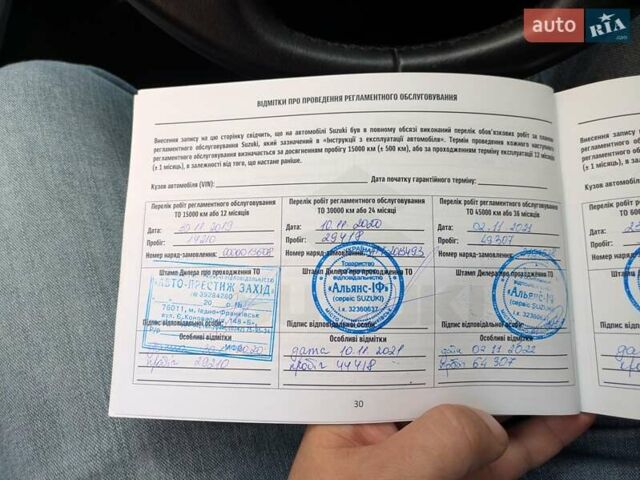 auto RIA.com
ВІДМІТКИ ПРО ПРОВЕДЕННЯ РЕГЛАМЕНТНОГО ОБСЛУГОВУВАННЯ
Внесення запису на цю сторінку свідчить, що на автомобілі Suzuki був в повному обсязі виконаний перелік обов'язкових робіт за планом
регламентного обслуговування Suzuki, який зазначений в «Інструкції з експлуатації автомобіля». Термін проведення кожного наступного
регламентного обслуговування визначається за досягненням пробігу 15000 км (± 500 км), або за проходженням терміну експлуатації 12 місяців
(± 1 місяць), в залежності від того, що настане раніше.
Кузов автомобіля (VIN): Дата початку гарантійного терміну:
Перелік робіт регламентного обслуговування
ТО 15000 км або 12 місяців
Дата: 2019
Пробіг: 14210
Номер наряд-замовлення:
Штамп Дилера про проходження ТО
«АВТО-ПРЕСТИЖ ЗАХІД»
№ 39284260
76011, м. Івано-Франківськ
Підпис відповідальної особи:
Особливі відмітки
2020
пробіг 29210
Перелік робіт регламентного обслуговування
ТО 30000 км або 24 місяці
Дата: 10.11.2020
Пробіг: 29418
Номер наряд-замовлення:
Штамп Дилера про проходження ТО
Товариство
відповідальністю
«Альянс-ІФ»
(сервіс SUZUKI)
і.к. 32360617
Підпис відповідальної особи:
Особливі відмітки
дата 10.11.2021
пробіг 44418
Перелік робіт регламентного обслуговування
ТО 45000 км або 36 місяців
Дата: 02.11.2021
Пробіг: 49307
Номер наряд-замовлення:
Штамп Дилера про проходження ТО
Товариство
відповідальністю
«Альянс-ІФ»
(сервіс SUZUKI)
і.к. 32360617
Підпис відповідальної особи:
Особливі відмітки
дата 02.11.2022
пробіг 64307
30
Дата:
Пробіг: